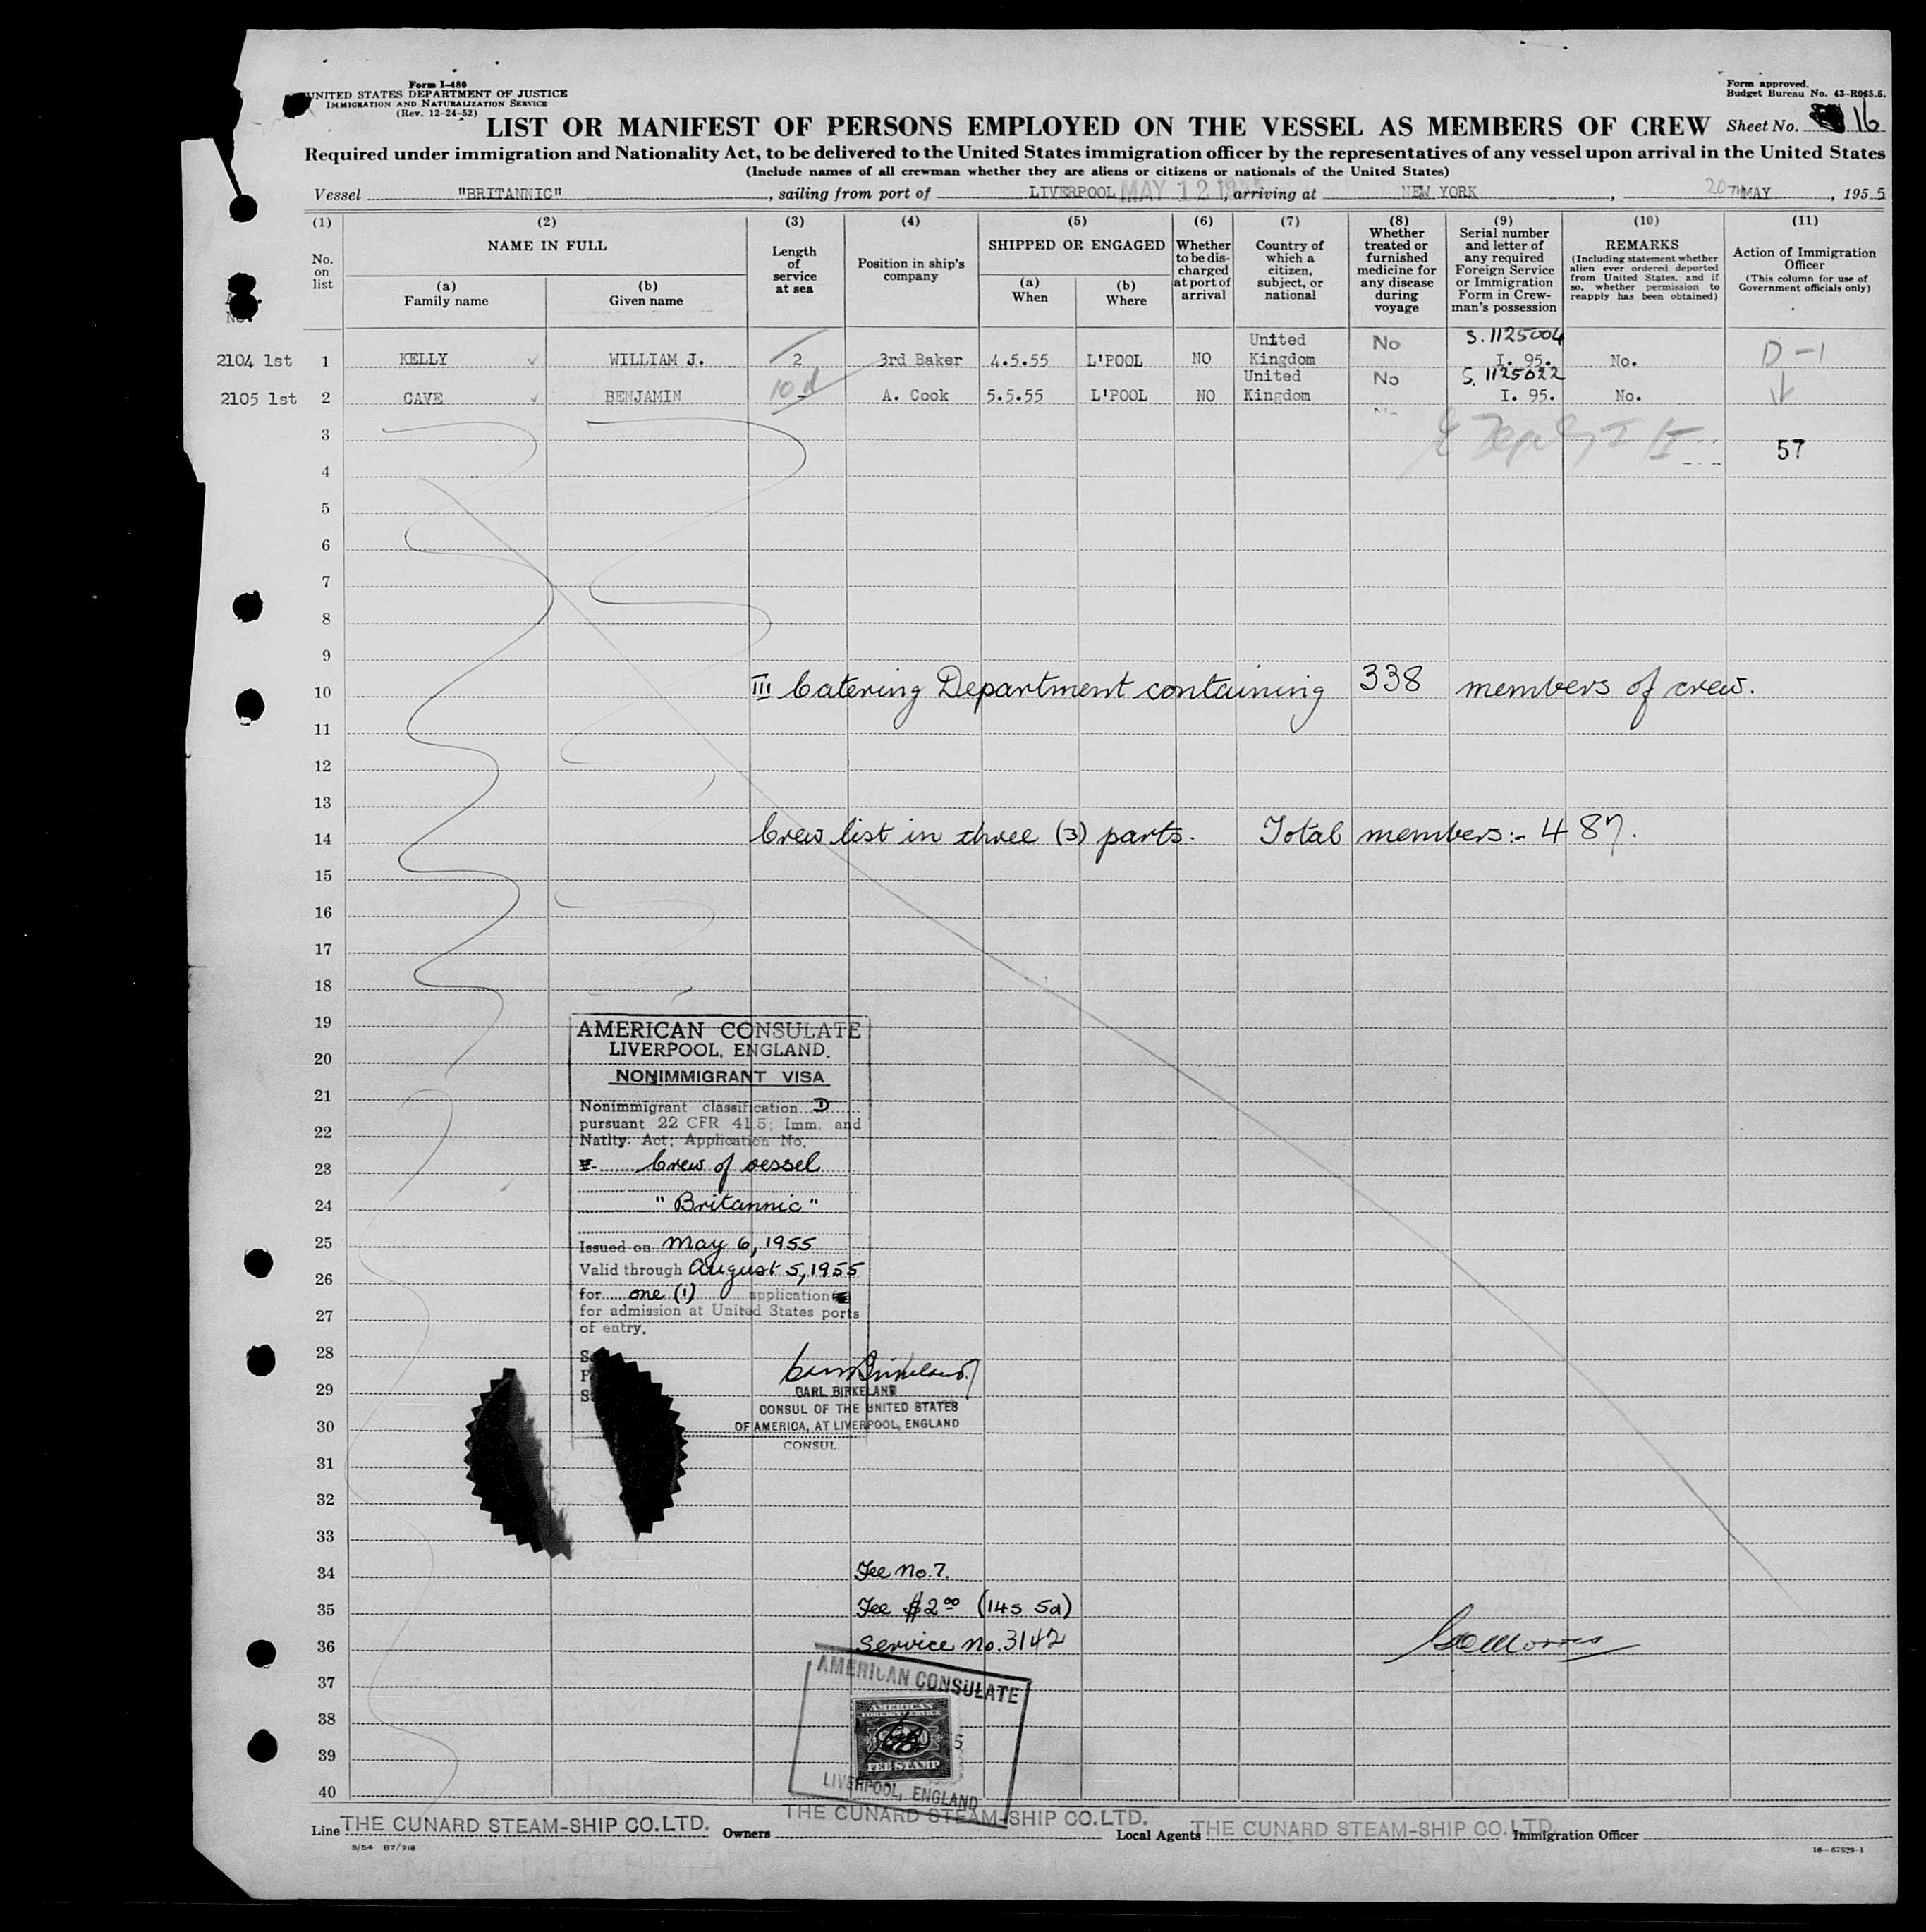 Form I-480
UNITED STATES DEPARTMENT OF JUSTICE
IMMIGRATION AND NATURALIZATION SERVICE
(Rev. 12-24-52)
Form approved.
Budget Bureau No. 43-R065.5.
LIST OR MANIFEST OF PERSONS EMPLOYED ON THE VESSEL AS MEMBERS OF CREW Sheet No. 16
Required under immigration and Nationality Act, to be delivered to the United States immigration officer by the representatives of any vessel upon arrival in the United States
(Include names of all crewman whether they are aliens or citizens or nationals of the United States)
Vessel "BRITANNIC", sailing from port of LIVERPOOL MAY 12 1955, arriving at NEW YORK, 20TH MAY, 1955
(1) (2) (3) (4) (5) (6) (7) (8) (9) (10) (11)
No. on list
NAME IN FULL
(a) Family name
(b) Given name
Length of service at sea
Position in ship's company
SHIPPED OR ENGAGED
(a) When
(b) Where
Whether to be discharged at port of arrival
Country of which a citizen, subject, or national
Whether treated or furnished medicine for any disease during voyage
Serial number and letter of any required Foreign Service or Immigration Form in Crewman's possession
REMARKS
(Including statement whether alien ever ordered deported from United States, and if so, whether permission to reapply has been obtained)
Action of Immigration Officer
(This column for use of Government officials only)
2104 1st 1 KELLY WILLIAM J. 2 3rd Baker 4.5.55 L'POOL NO United Kingdom No S. 1125004 I. 95. No. D-1
2105 1st 2 CAVE BENJAMIN 10 d A. Cook 5.5.55 L'POOL NO United Kingdom No S. 1125022 I. 95. No.
3
57
4
5
6
7
8
9
10 III Catering Department containing 338 members of crew.
11
12
13
14 Crew list in three (3) parts. Total members:- 487.
15
16
17
18
19 AMERICAN CONSULATE
LIVERPOOL, ENGLAND.
20
NONIMMIGRANT VISA
21 Nonimmigrant classification D
pursuant 22 CFR 41.5; Imm. and
22 Natlty. Act; Application No.
23 V- Crew of vessel
24 "Britannic"
25 Issued on May 6, 1955
Valid through August 5, 1955
26 for one (1) application
for admission at United States ports
27 of entry.
28
29 CARL BIRKELAND
CONSUL OF THE UNITED STATES
30 OF AMERICA, AT LIVERPOOL, ENGLAND
CONSUL
31
32
33
34 Fee No. 7.
35 Fee $2.00 (14s 5d)
36 Service No. 3142
37 AMERICAN CONSULATE
38 AMERICAN
FOREIGN SERVICE
39 FEE STAMP
40 LIVERPOOL, ENGLAND
Line THE CUNARD STEAM-SHIP CO.LTD. Owners THE CUNARD STEAM-SHIP CO.LTD. Local Agents THE CUNARD STEAM-SHIP CO.LTD. Immigration Officer
8/54 87/918
16-67829-1